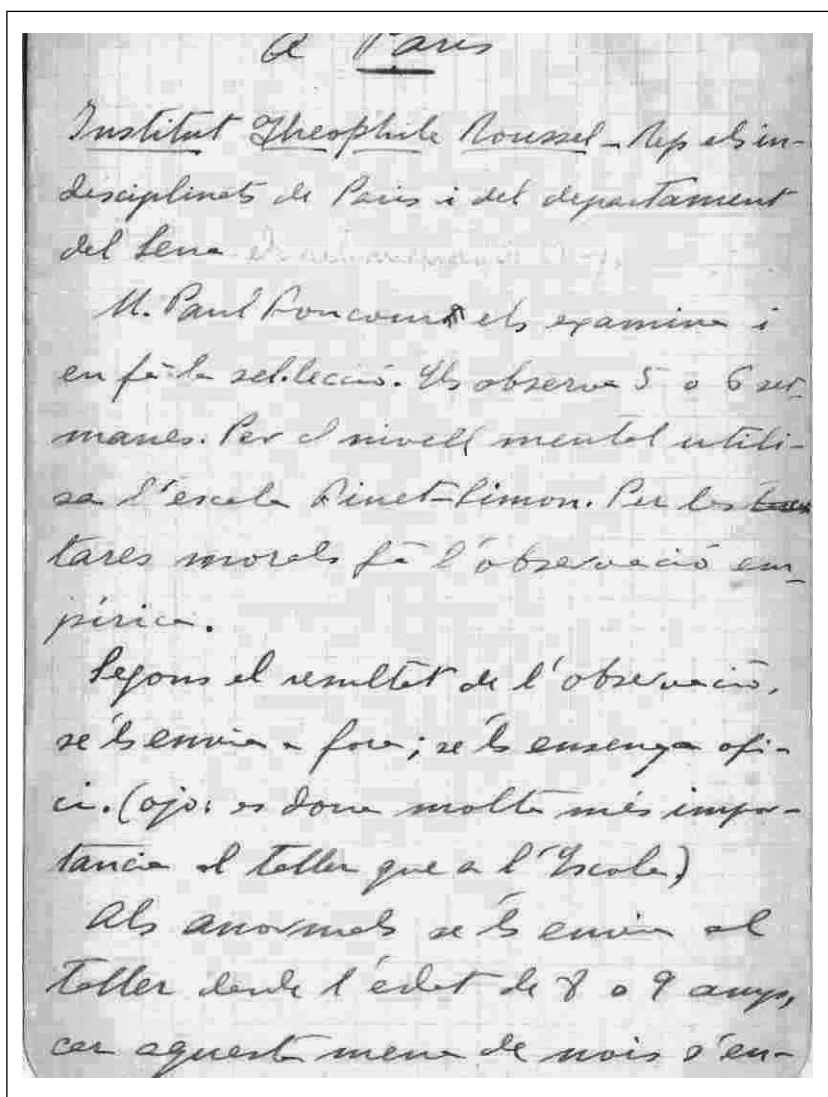 A Paris
Institut Theophile Roussel - Rep els in-
disciplinats de Paris i del departament
del Sena
M. Paul Boncour els examina i
en fà la sel·lecció. Els observa 5 o 6 set-
manes. Per el nivell mental utili-
sa l'escala Binet-Simon. Per les
tares morals fà l'observació em-
pírica.
Segons el resultat de l'observació,
se'ls envia a fora; se'ls ensenya ofi-
ci. (ojo: es dona molta més impor-
tancia al taller que a l'Escola)
Als anormals se'ls envia al
taller desde l'edat de 8 o 9 anys,
car aquesta mena de nois s'en-